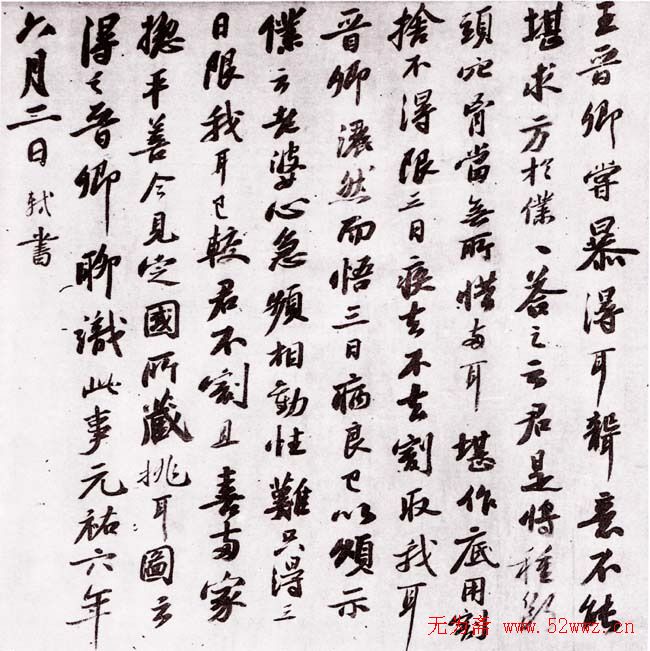 王晉卿嘗暴得耳聾意不能
堪求方於僕、答之云君是將種斷
頭穴胷當無所惜兩耳堪作底用割
捨不得限三日疾去不去割取我耳
晉卿灑然而悟三日病良已以頌示
僕云老婆心急頻相勸性難只得三
日限我耳已較君不割且喜兩家
揔平善今見定國所藏挑耳圖云
得之晉卿聊識此事元祐六年
六月三日軾書
无为斋 www.52wwz.cn